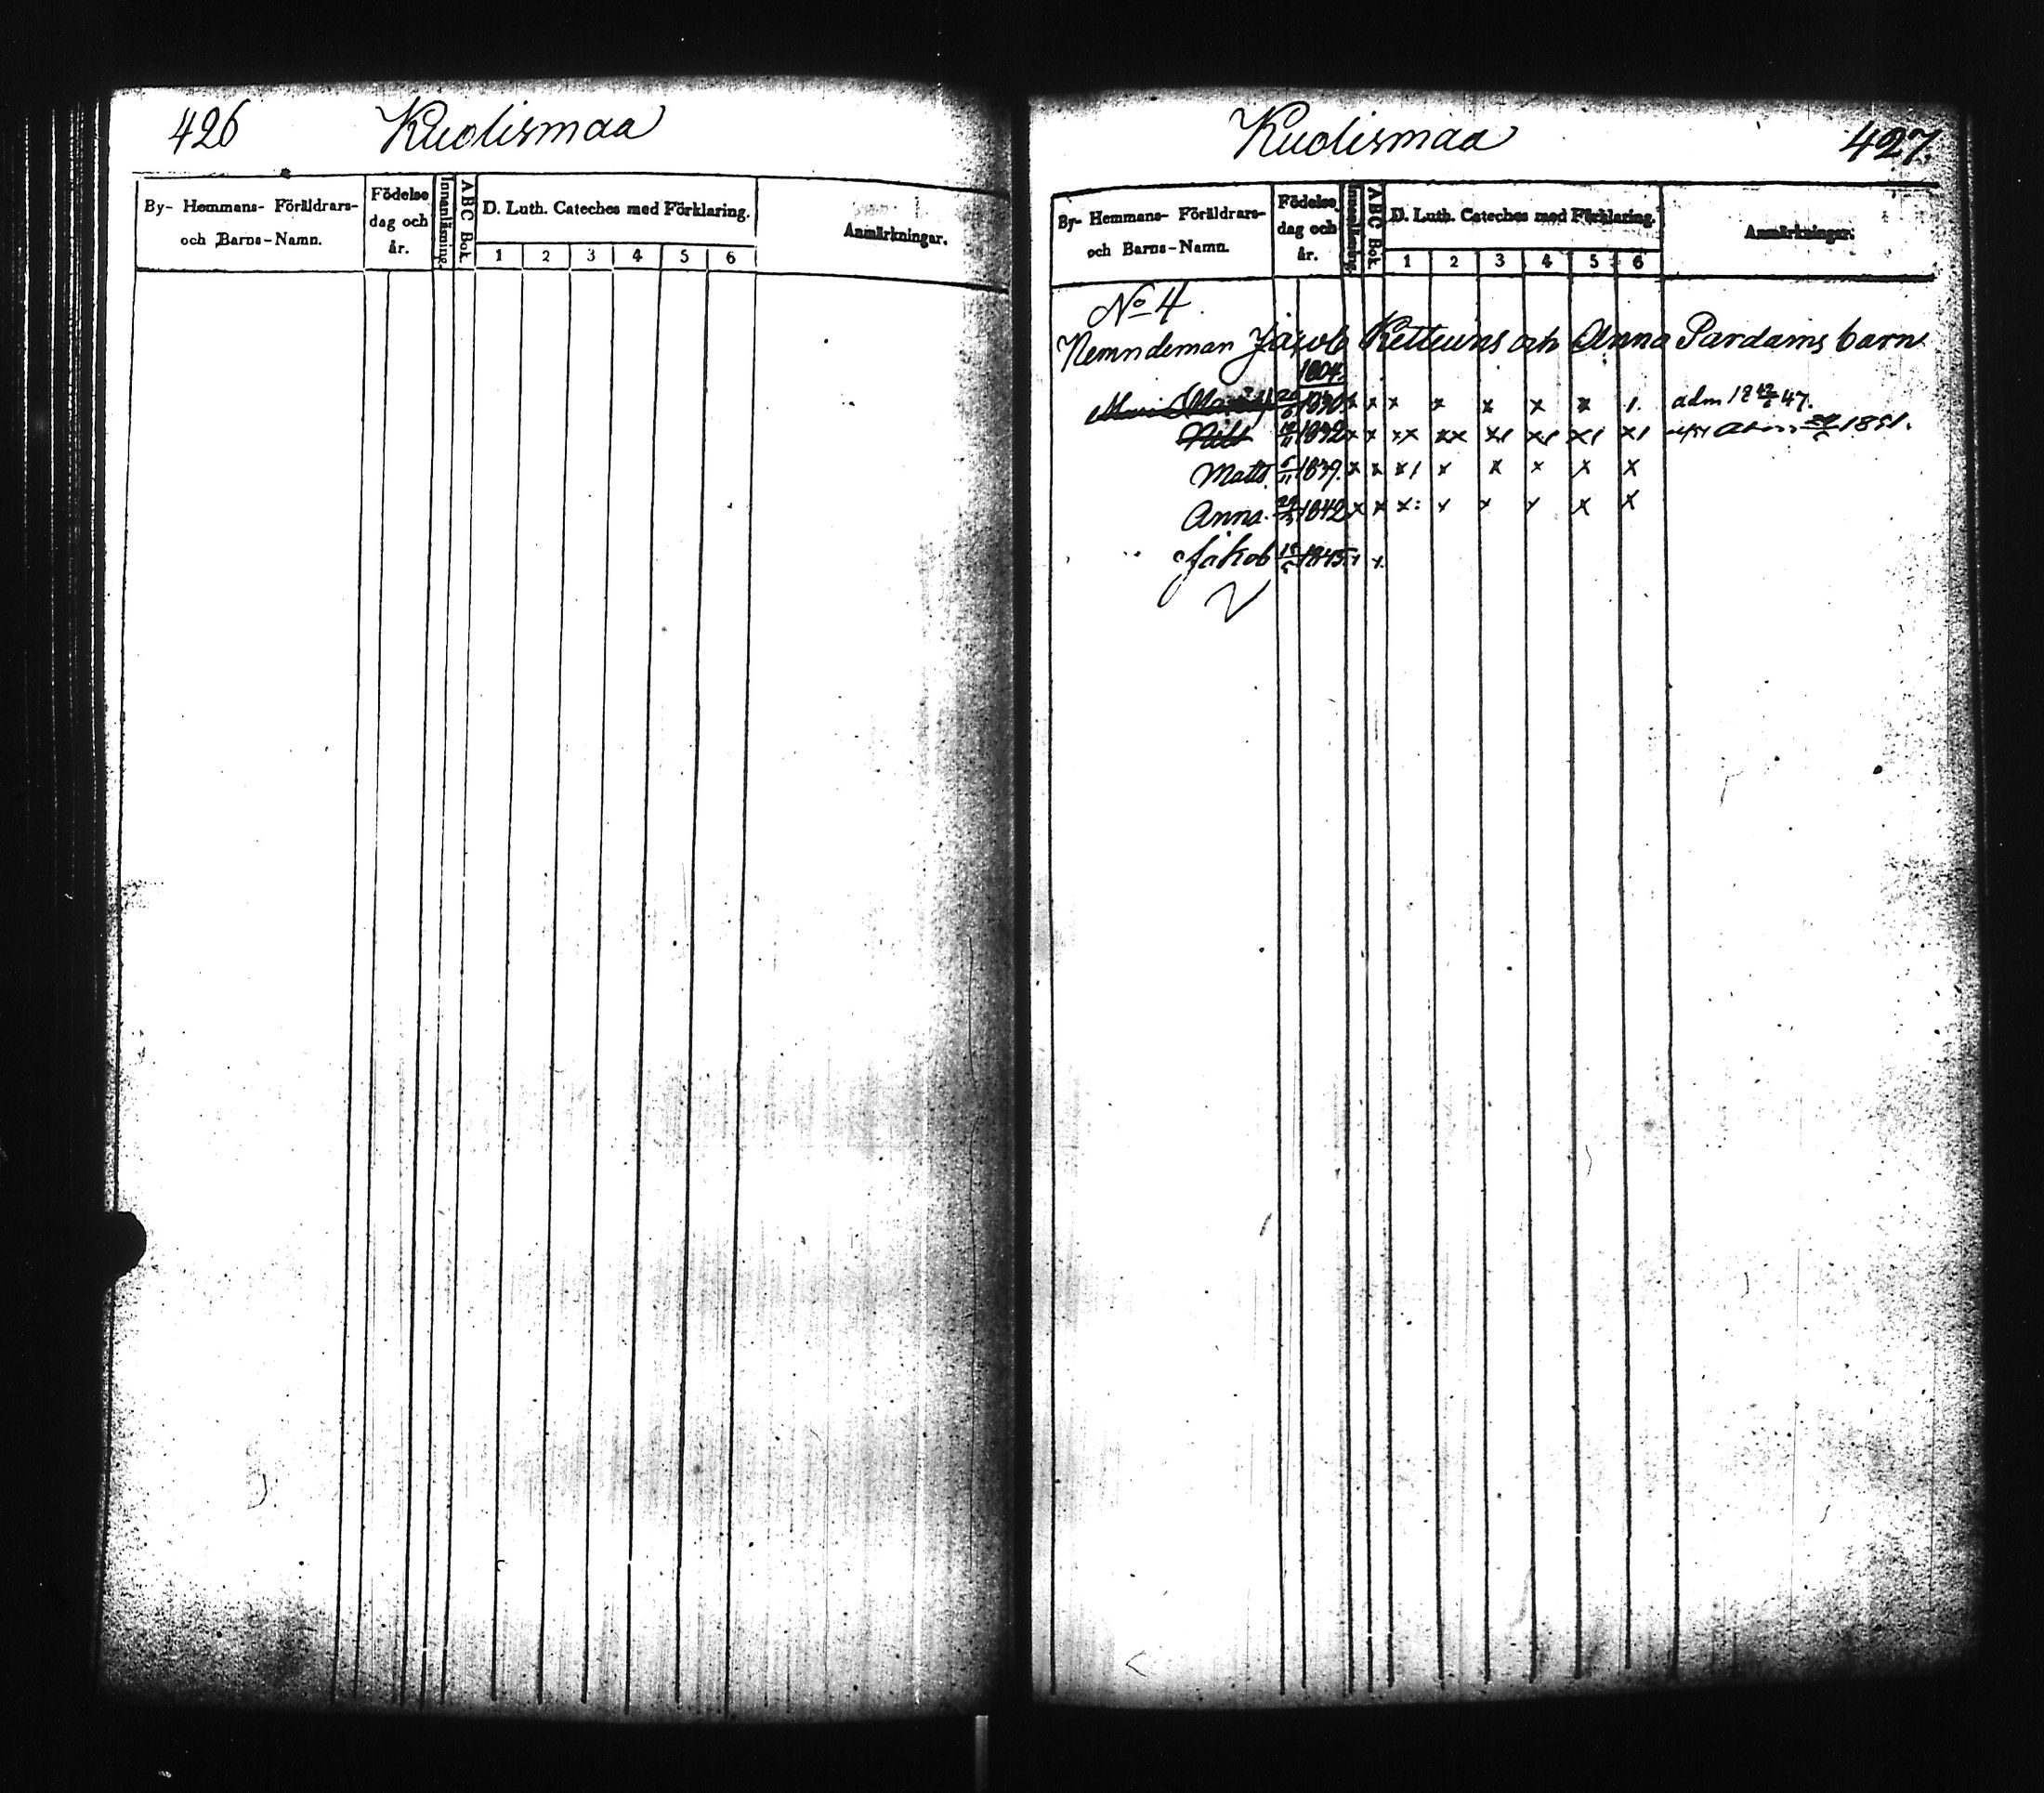 426 Kuolismaa
By- Hemmans- Föräldrars- och Barns-Namn.
Födelse dag och år.
Innanläsning.
ABC Bok.
D. Luth. Cateches med Förklaring.
1 2 3 4 5 6
Anmärkningar.
Kuolismaa 427.
By- Hemmans- Föräldrars- och Barns-Namn.
Födelse dag och år.
Innanläsning.
ABC Bok.
D. Luth. Cateches med Förklaring.
1 2 3 4 5 6
Anmärkningar.
No 4
Nemndeman Jacob Kettuins och Anna Pardains barn
1804.
1830 x x x x x x x 1. adm 18 47.
Nils 1832 x x xx xx x1 x1 x1 x1 1851.
Matts. 5/11 1839. x x x1 x x x x x
Anna. 1842 x x x: x x x x x
Jakob 1845. x x.